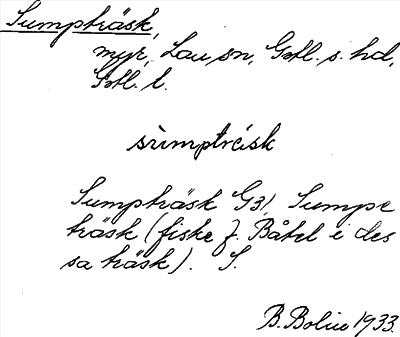 Sumpträsk,
myr, Lau sn, Gotl. s. hd,
Gotl. l.
sùmptrέisk
Sumpträsk G31 Sumpe
träsk (fiske f. Båtel i des
sa träsk). S.
B. Bolin 1933.